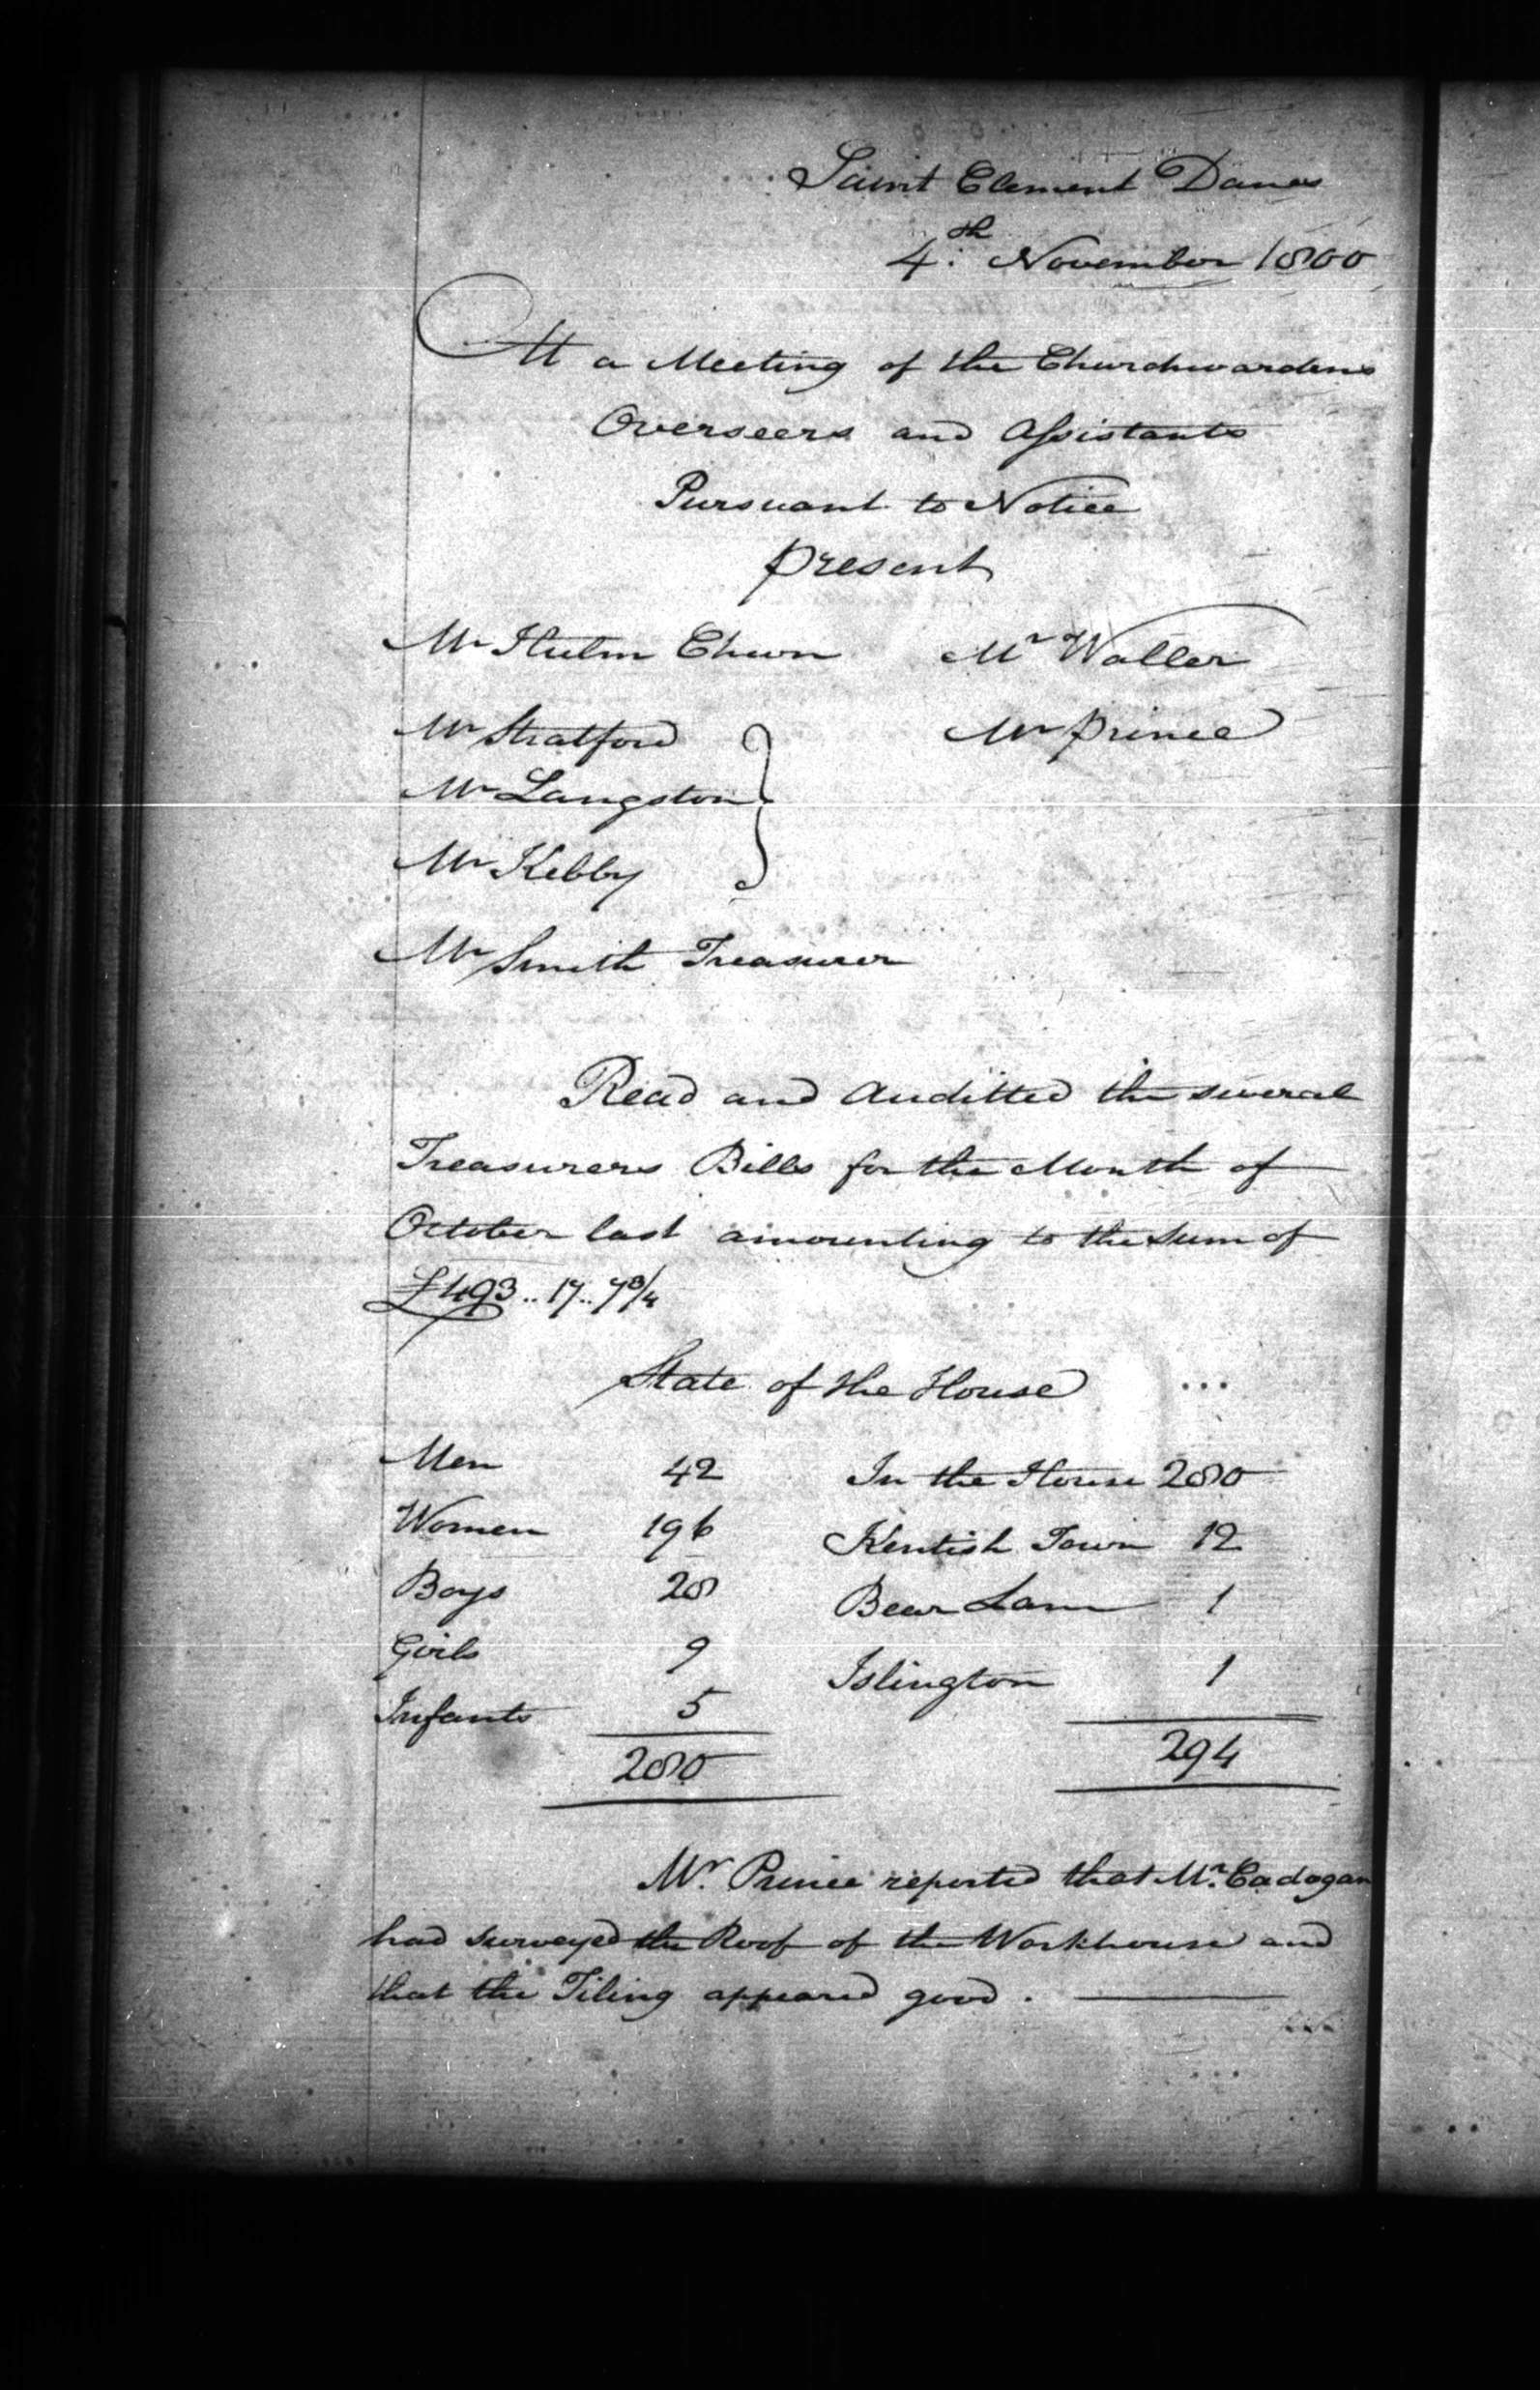 Saint Clement Danes
4th November 1800
At a Meeting of the Churchwardens
Overseers and Assistants
Pursuant to Notice
present
Mr Hulm Chwn Mr Waller
Mr Stratford Mr Prince
Mr Langston
Mr Kebby
Mr Smith Treasurer
Read and Auditted the several
Treasurers Bills for the Month of
October last amounting to the Sum of
£493..17..7 3/4
State of the House
Men 42 In the House 280
Women 196 Kentish Town 12
Boys 28 Bear Lane 1
Girls 9 Islington 1
Infants 5
280 294
Mr. Prince reported that Mr. Cadogan
had surveyed the Roof of the Workhouse and
that the Tiling appeared good.